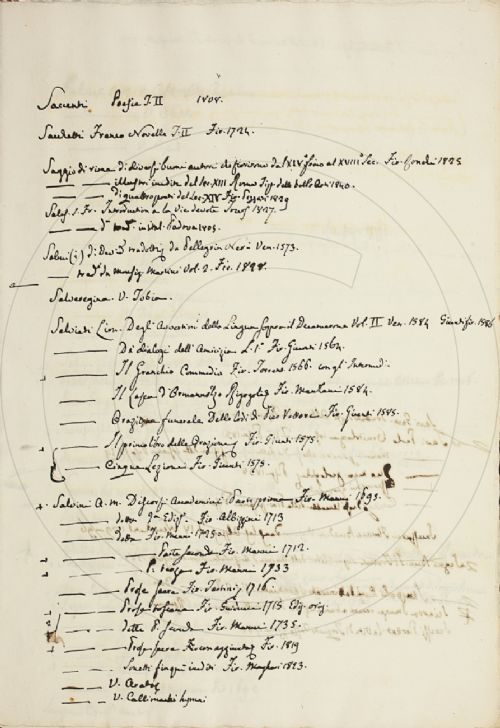 Saccenti Poesie T. II 1808.
Sacchetti Franco Novelle T. II Fir. 1724.
Saggio di rime di diversi buoni autori che fiorirono dal XIV fino al XVIII Sec. Fir. Ronchi 1825
—— —— illustri inedite del sec. XIII Roma Tip. delle belle Arti 1840.
—— —— di quattro poeti del Sec. XIV Fir. 1829
Sales S. Fr. Introduzione a la vita devota 1827.
—— dº trad. Padova
Salmi (i) di David tradotti da Pellegrin Heri Ven. 1573.
—— trad. da monsig. Martini Vol. 2. Fir.
Salveregina V. Tobia.
Salviati Lion. Degli Avvertimenti della Lingua sopra il Decamerone Vol. II Ven. 1584 Giunti Fir. 1586
—— De' dialogi dell'Amicizia L. 1º Fir. Giunti 1564.
—— Il Granchio Commedia Fir. Torrent. 1566 con gl'Intermedi
—— Il Fir. 1584.
—— Orazione funerale Delle lodi di Pier Vettori Fir. Giunti 1585.
—— Il primo libro delle Orazioni Fir. Giunti 1575.
—— Cinque Lezioni Fir. Giunti 1575.
Salvini A. M. Discorsi Accademici Parte prima Fir. Manni 1695.
—— dette Ediz. Fir. Albizzini 1713
—— dette Fir. Manni 1725
—— —— Parte seconda Fir. Manni 1712.
—— —— P. terza Fir. Manni 1733
—— Prose sacre Fir. Tartini 1716
—— Prose toscane Fir. Guiducci 1715 Ediz. orig.
—— dette P. seconda Fir. Manni 1735.
—— Prose sacre Fir. 1819
—— Sonetti fin qui inediti Fir. Magheri 1823.
—— V. Arato
—— V. Callimachi hymni